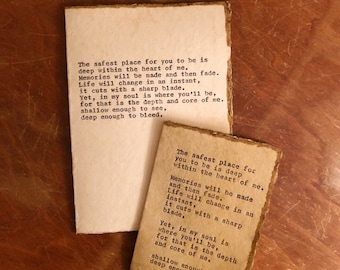 The safest place for you to be is
deep within the heart of me.
Memories will be made and then fade.
Life will change in an instant,
it cuts with a sharp blade.
Yet, in my soul is where you'll be,
for that is the depth and core of me.
shallow enough to see,
deep enough to bleed.
The safest place for
you to be is deep
within the heart of me.
Memories will be made
and then fade.
Life will change in an
instant,
it cuts with a sharp
blade.
Yet, in my soul is
where you'll be,
for that is the depth
and core of me.
shallow enough to see,
deep enough